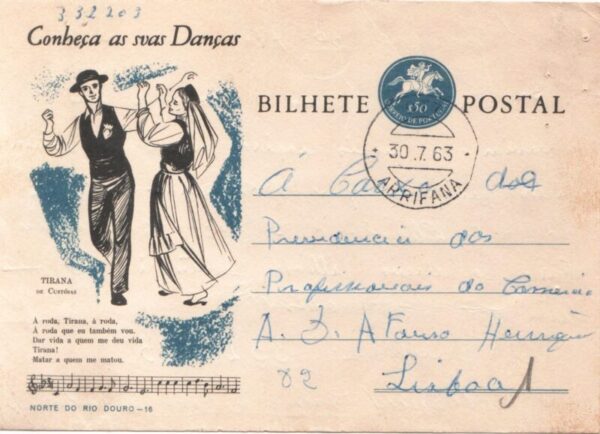 332203
Conheça as svas Danças
BILHETE POSTAL
CORREIO DE PORTUGAL
$50
30.7.63
ARRIFANA
Á Caixa dos
Previdencia dos
Profissionais do Comercio
A. D. Afonso Henriques
82
Lisboa 1
TIRANA
DE CUSTÓIAS
Á roda, Tirana, á roda,
Á roda que eu também vou.
Dar vida a quem me deu vida
Tirana!
Matar a quem me matou.
NORTE DO RIO DOURO — 16